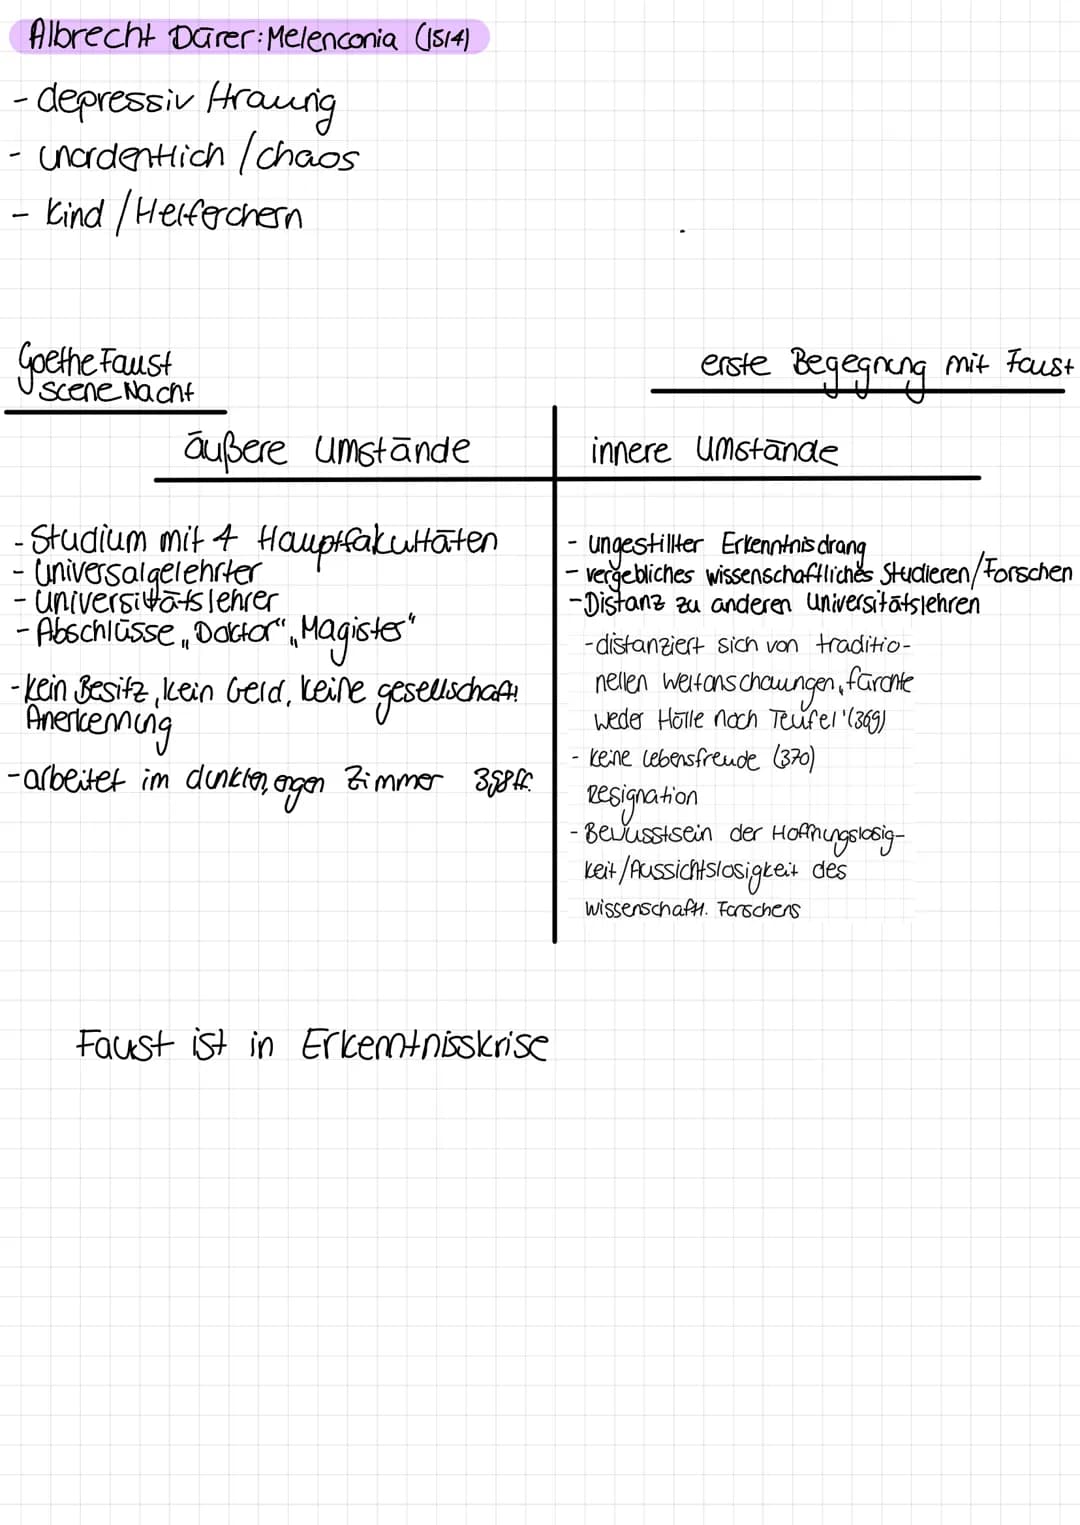 Albrecht Dürer: Melenconia (1514)
- depressiv /traurig
- unordentlich / chaos
- Kind / Helferchern
Goethe Faust
scene Nacht
erste Begegnung mit Faust
äußere Umstände
innere Umstände
- Studium mit 4 Hauptfakultäten
- Universalgelehrter
- Universitätslehrer
- Abschlüsse „Doktor“ „Magister“
- kein Besitz, kein Geld, keine gesellschaftl.
Anerkennung
- arbeitet im dunklen, engen Zimmer 398ff.
- ungestillter Erkenntnisdrang
- vergebliches wissenschaftliches Studieren/Forschen
- Distanz zu anderen Universitätslehren
- distanziert sich von traditio-
nellen Weltanschauungen, fürchte
weder Hölle noch Teufel' (369)
- keine Lebensfreude (370)
Resignation
- Bewusstsein der Hoffnungslosig-
keit/Aussichtslosigkeit des
wissenschaftl. Forschens
Faust ist in Erkenntnisskrise